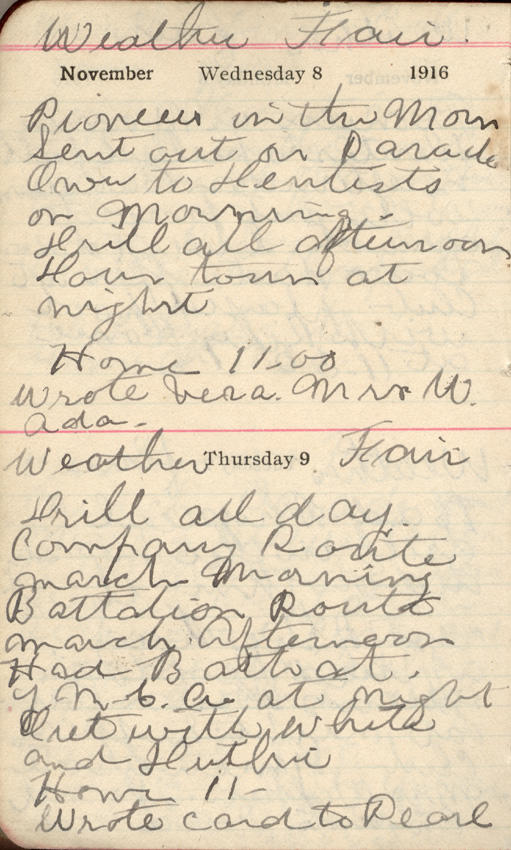 Weather Fair.
November Wednesday 8 1916
Pioneers in the Morn
Sent out on Parade
Over to Dentists
on Mornning.
Drill all afternoon
Down town at
night
Home 11-00
Wrote Vera. Mrs W.
Ada-
Weather Thursday 9 Fair
Drill all day.
Company Route
march Morning
Battalion Route
march Afternoon
Had Bath at.
Y.M.C.A. at night
Out with White
and Guthrie
Home 11-
Wrote card to Pearl